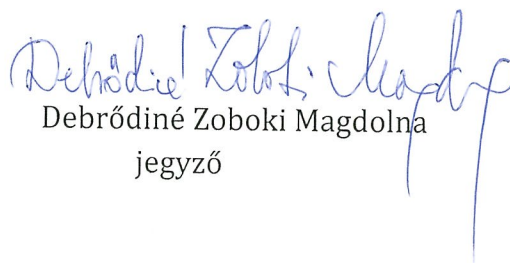 Debrődiné Zoboki Magdolna
Debrődiné Zoboki Magdolna
jegyző